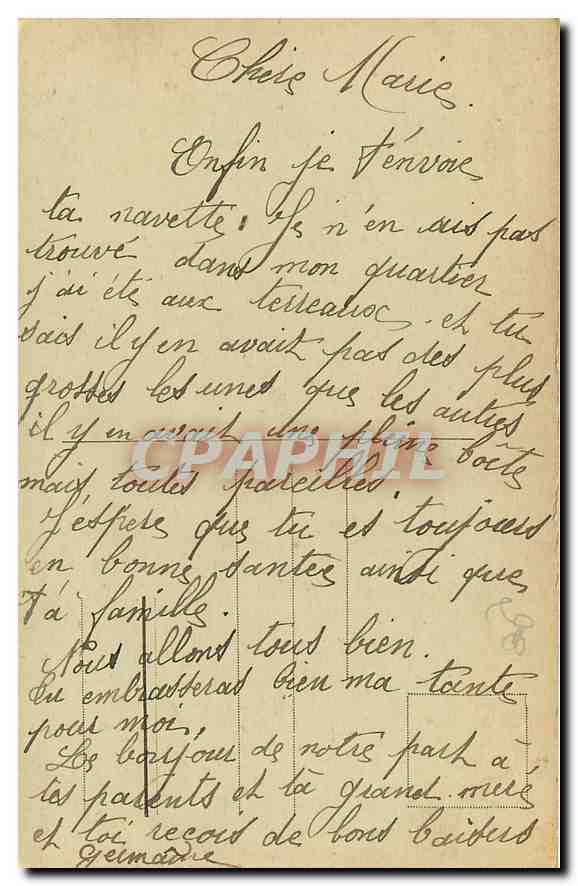 Chère Marie.
Enfin je t'envoie
ta navette. Je n'en ais pas
trouvé dans mon quartier
j'ai été aux terreaux. et tu
sais il y en avait pas des plus
grosses les unes que les autres
il y en avait une pleine boîte
mais toutes pareilles.
J'éspère que tu es toujours
en bonne santée ainsi que
t'a famille.
Nous allons tous bien.
tu embrasseras bien ma tante
pour moi.
Le bonjour de notre part à
tes parents et ta grand-meré
et toi reçois de bons baisers
Germaine
CPAPHIL